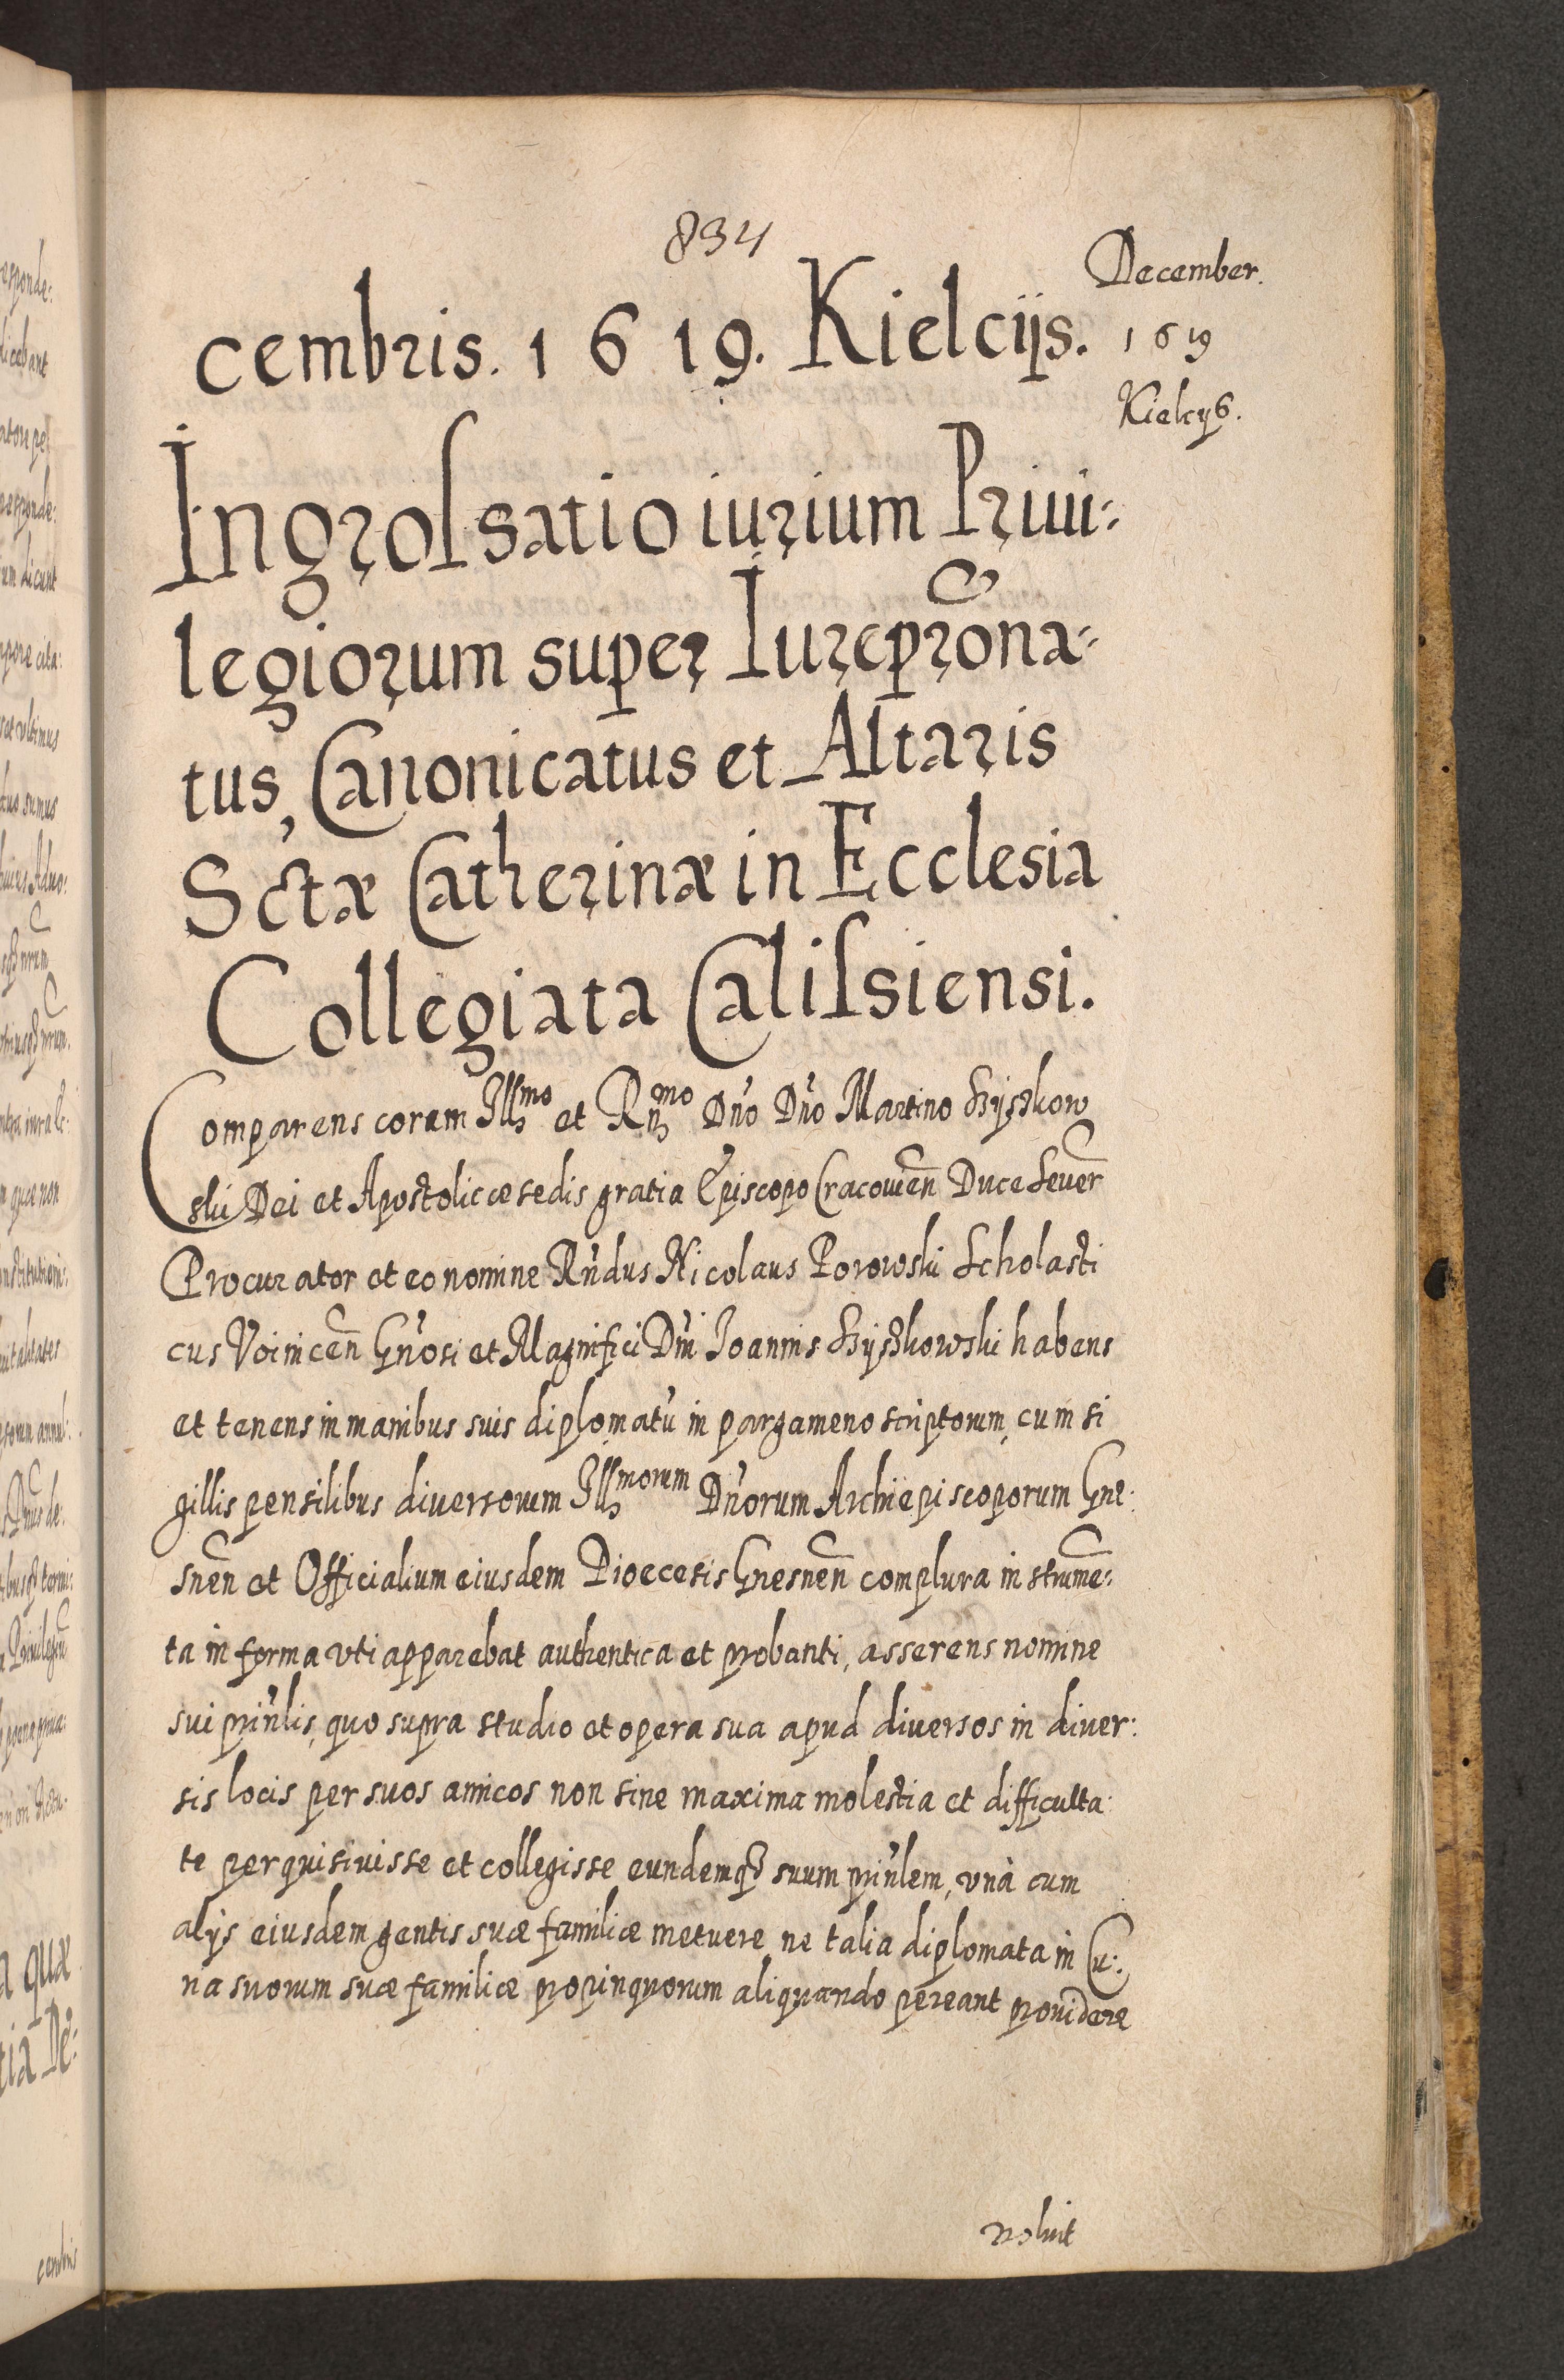 834
December.
1619
Kielcijs.
cembris. 1619. Kielcijs.
Ingrossatio iurium Priui-
legiorum super Iureprona-
tus, Canonicatus et Altaris
Sctæ Catherinæ in Ecclesia
Collegiata Calissiensi.
Comparens coram Illmo et Rnmo Dno Dno Martino Szyszkow
ski Dei et Apostolicæ sedis gratia Episcopo Cracouien Duce Seuer
Procurator et eo nomine Rndus Nicolaus Porowski Scholasti
cus Voinicen Gnosi et Magnifici Dni Joannis Szyszkowski habens
et tenens in manibus suis diplomatu in pargameno scriptorum, cum si
gillis pensilibus diuersorum Illmorum Dnorum Archiepiscoporum Gne:
snen et Officialium eiusdem Dioecesis Gnesnen complura instrume:
ta in forma vti apparebat authentica et probanti, asserens nomine
sui prinlis, quo supra studio et opera sua apud diuersos in diuer:
sis locis per suos amicos non sine maxima molestia et difficulta:
te perquisiuisse et collegisse eundemq3 suum prinlem, vnà cum
alijs eiusdem gentis suæ familiæ metuere ne talia diplomata in
na suorum suæ familiæ propinquorum aliquando pereant prouidere
voluit